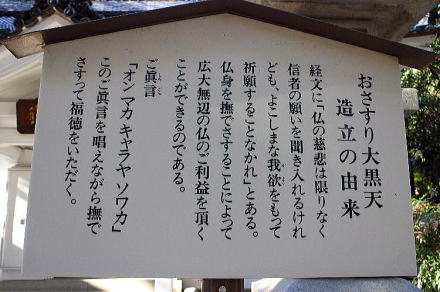 おさすり大黒天
造立の由来
経文に「仏の慈悲は限りなく
信者の願いを聞き入れるけれ
ども、よこしまな我欲をもって
祈願することなかれ」とある。
仏身を撫でさすることによって
広大無辺の仏のご利益を頂く
ことができるのである。
ご眞言
「オン マカ キャラヤ ソワカ」
このご眞言を唱えながら撫で
さすって福徳をいただく。